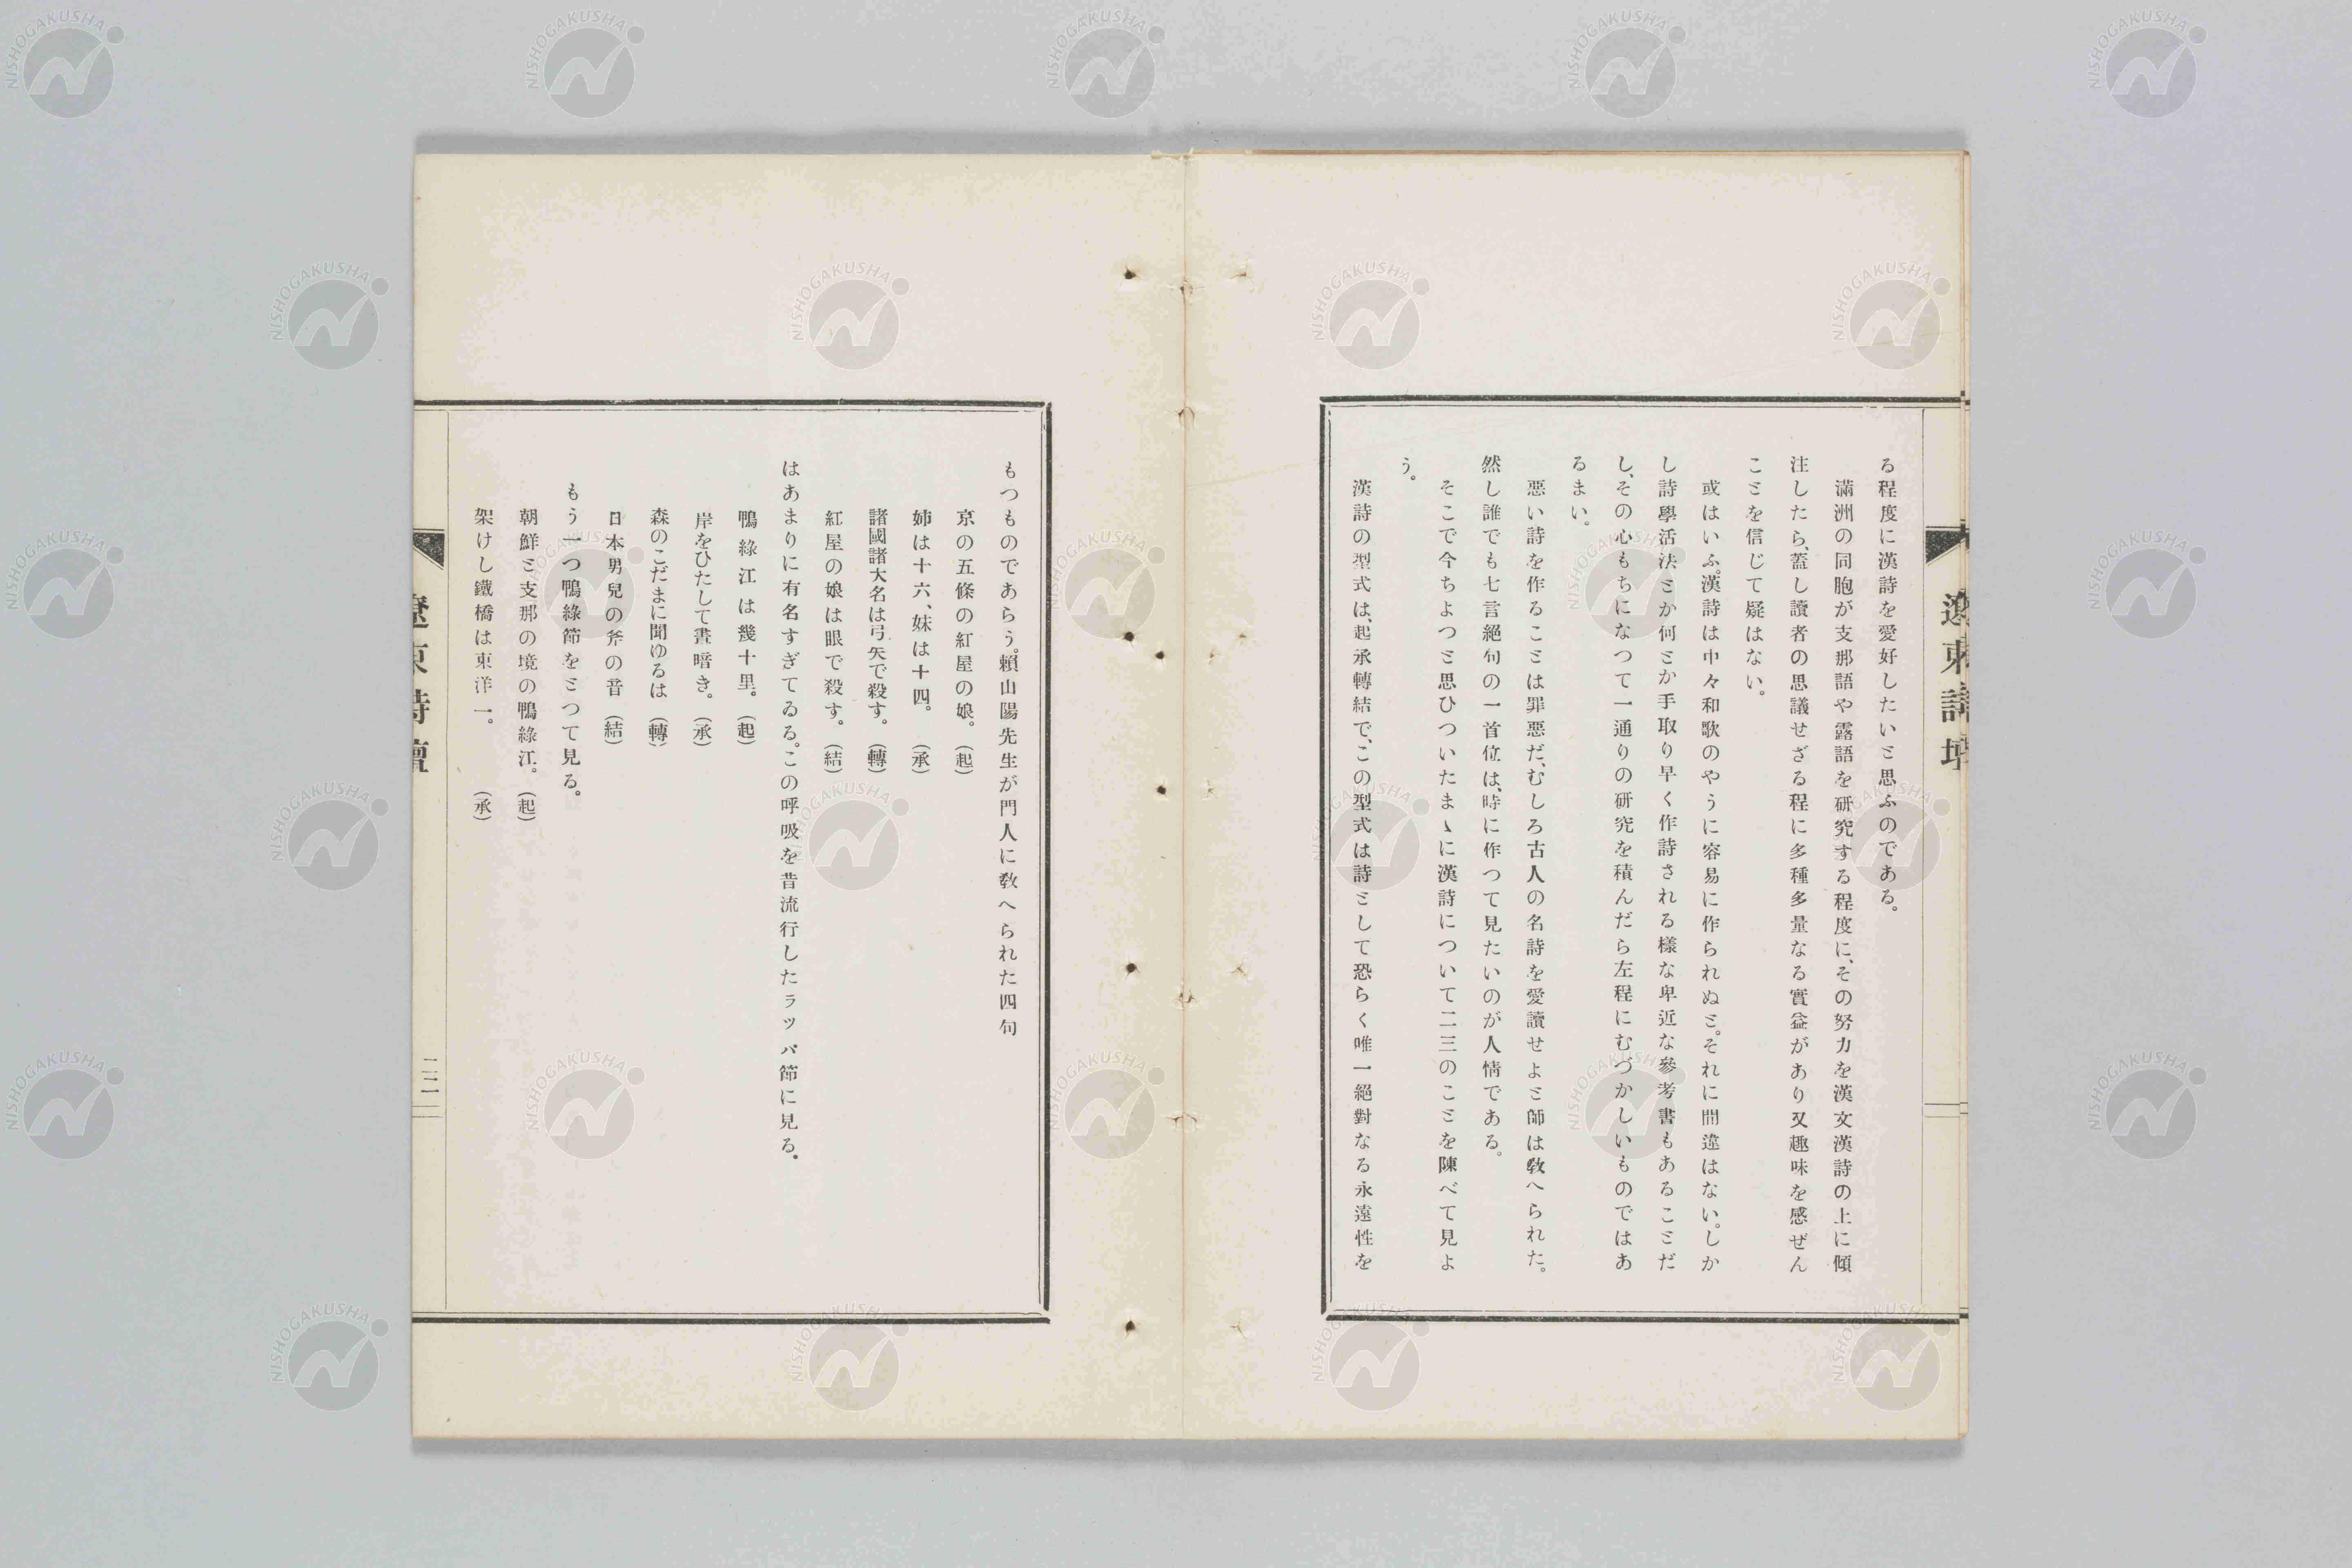 る程度に漢詩を愛好したいと思ふのである。
滿洲の同胞が支那語や露語を研究する程度に、その努力を漢文漢詩の上に傾
注したら、蓋し讀者の思議せざる程に多種多量なる實益があり又趣味を感ぜん
ことを信じて疑はない。
或はいふ。漢詩は中々和歌のやうに容易に作られぬと。それに間違はない。しか
し詩學活法とか何とか手取り早く作詩される樣な卑近な參考書もあることだ
し、その心もちになつて一通りの研究を積んだら左程にむづかしいものではあ
るまい。
惡い詩を作ることは罪惡だ、むしろ古人の名詩を愛讀せよと師は敎へられた。
然し誰でも七言絕句の一首位は、時に作つて見たいのが人情である。
そこで今ちよつと思ひついたまゝに漢詩について二三のことを陳べて見よ
う。
漢詩の型式は、起承轉結で、この型式は詩として恐らく唯一絕對なる永遠性を
遼東詩壇
もつものであらう。賴山陽先生が門人に敎へられた四句
京の五條の紅屋の娘。（起）
姉は十六、妹は十四。（承）
諸國諸大名は弓矢で殺す。（轉）
紅屋の娘は眼で殺す。（結）
はあまりに有名すぎてゐる。この呼吸を昔流行したラッパ節に見る。
鴨綠江は幾十里。（起）
岸をひたして晝暗き。（承）
森のこだまに聞ゆるは（轉）
日本男兒の斧の音（結）
もう一つ鴨綠節をとつて見る。
朝鮮と支那の境の鴨綠江。（起）
架けし鐵橋は東洋一。（承）
遼東詩壇
NISHOGAKUSHA